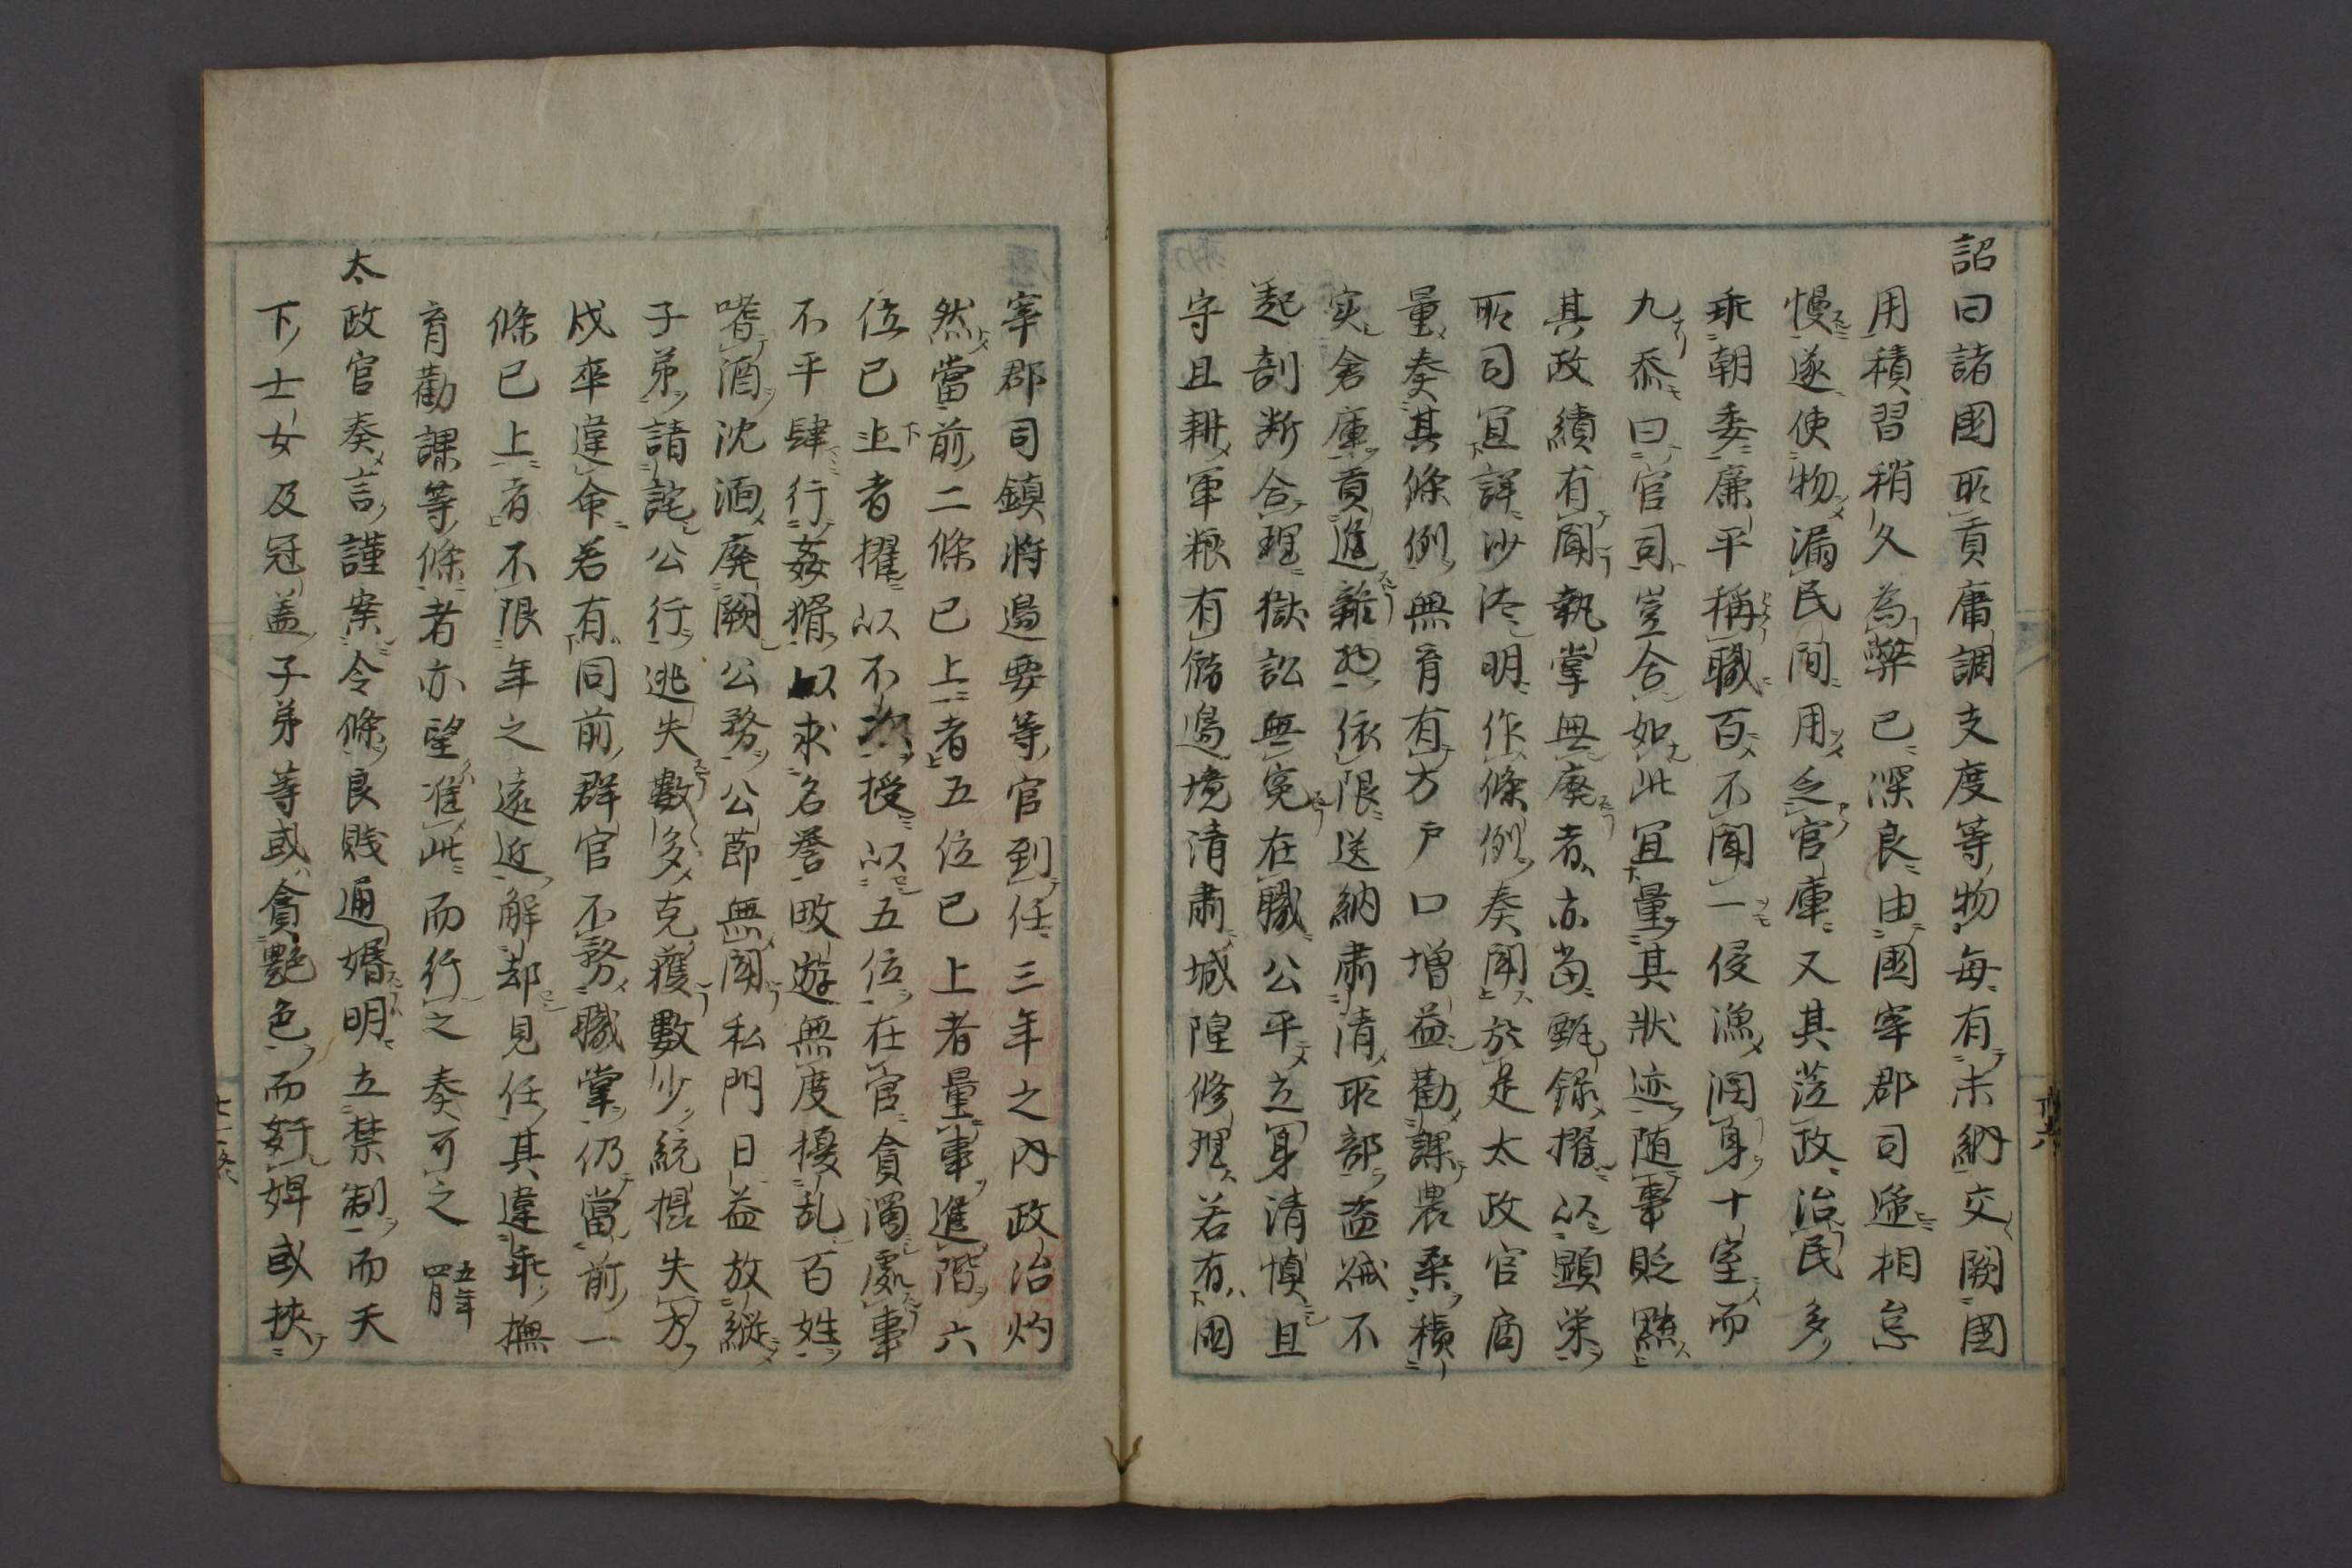 詔曰諸國所貢庸調支度等物每有未納交闕國
用積習稍久為弊已深良由國宰郡司遞相怠
慢遂使物漏民間用乏官庫又其莅政治民多
乖朝委廉平稱職百不聞一侵漁潤身十室而
九忝曰官司豈合如此宜量其狀迹随事貶黜
其政績有聞執掌無廢者亦當甄錄擢以顯栄
所司宜詳沙汰明作條例奏聞於是太政官商
量奏其條例無育有方戸口增益勸課農桑積
実倉庫貢進雜物依限送納肅清所部盗賊不
起剖斷合理獄訟無寃在職公平立身清慎且
守且耕軍粮有儲邊境清肅城隍修理若有國
宰郡司鎮将邊要等官到任三年之內政治灼
然當前二條已上者五位已上者量事進階六
位已下者擢以不次授以五位在官貪濁處事
不平肆行姦猾以求名譽畋遊無度擾乱百姓
嗜酒沈湎廢闕公務公節無聞私門日益放縦
子弟請託公行逃失數多克獲數少統摂失方
戍卒違命若有同前群官不務職掌仍當前一
條已上者不限年之遠近解却見任其違乖撫
育勸課等條者亦望准此而行之奏可之 五年四月
太政官奏言謹案令條良賤通婚明立禁制而天
下士女及冠盖子弟等或貪艶色而姧婢或挟